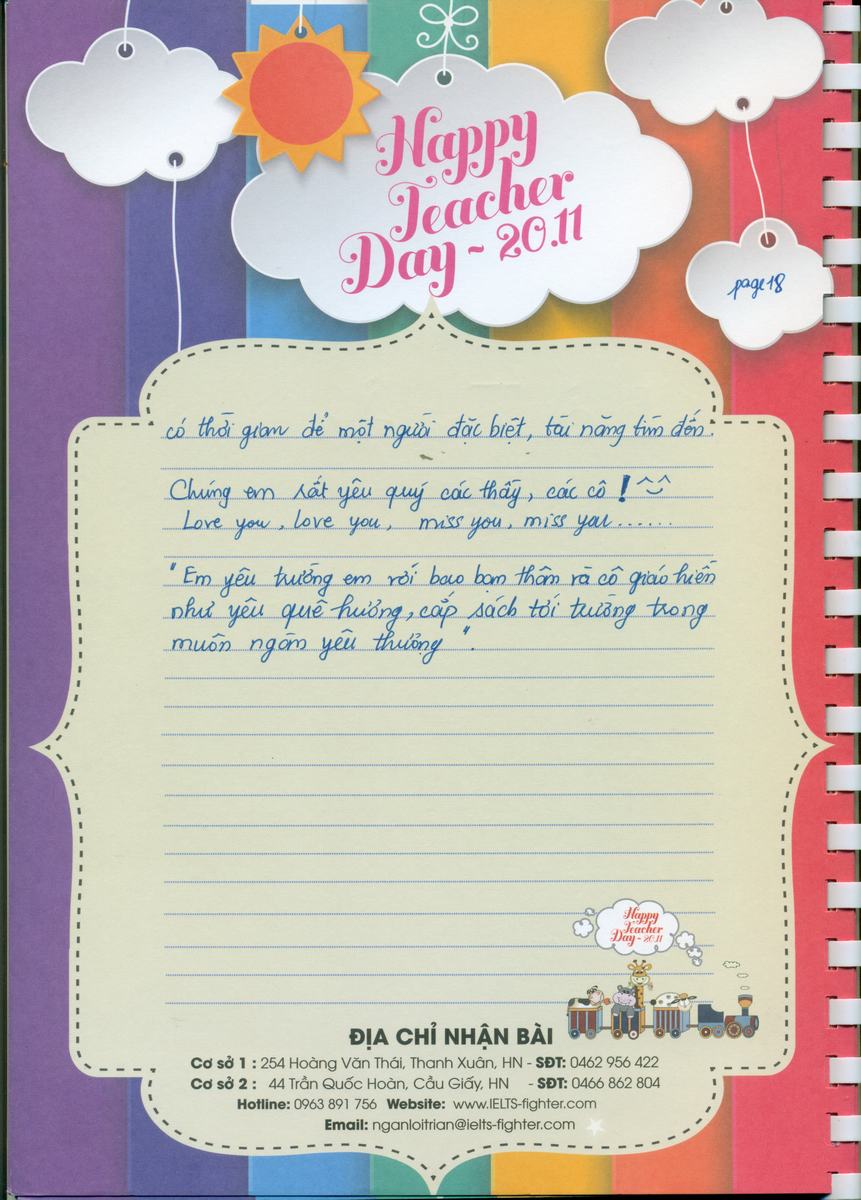 Happy
Teacher
Day ~ 20.11
page 18
có thời gian để một người đặc biệt, tài năng tìm đến.
Chúng em rất yêu quý các thầy, các cô ! ^‿^
Love you, love you, miss you, miss you......
"Em yêu trường em với bao bạn thân và cô giáo hiền
như yêu quê hương, cắp sách tới trường trong
muôn ngàn yêu thương".
Happy
Teacher
Day ~ 20.11
ĐỊA CHỈ NHẬN BÀI
Cơ sở 1 : 254 Hoàng Văn Thái, Thanh Xuân, HN - SĐT: 0462 956 422
Cơ sở 2 : 44 Trần Quốc Hoàn, Cầu Giấy, HN - SĐT: 0466 862 804
Hotline: 0963 891 756 Website: www.IELTS-fighter.com
Email: nganloitrian@ielts-fighter.com